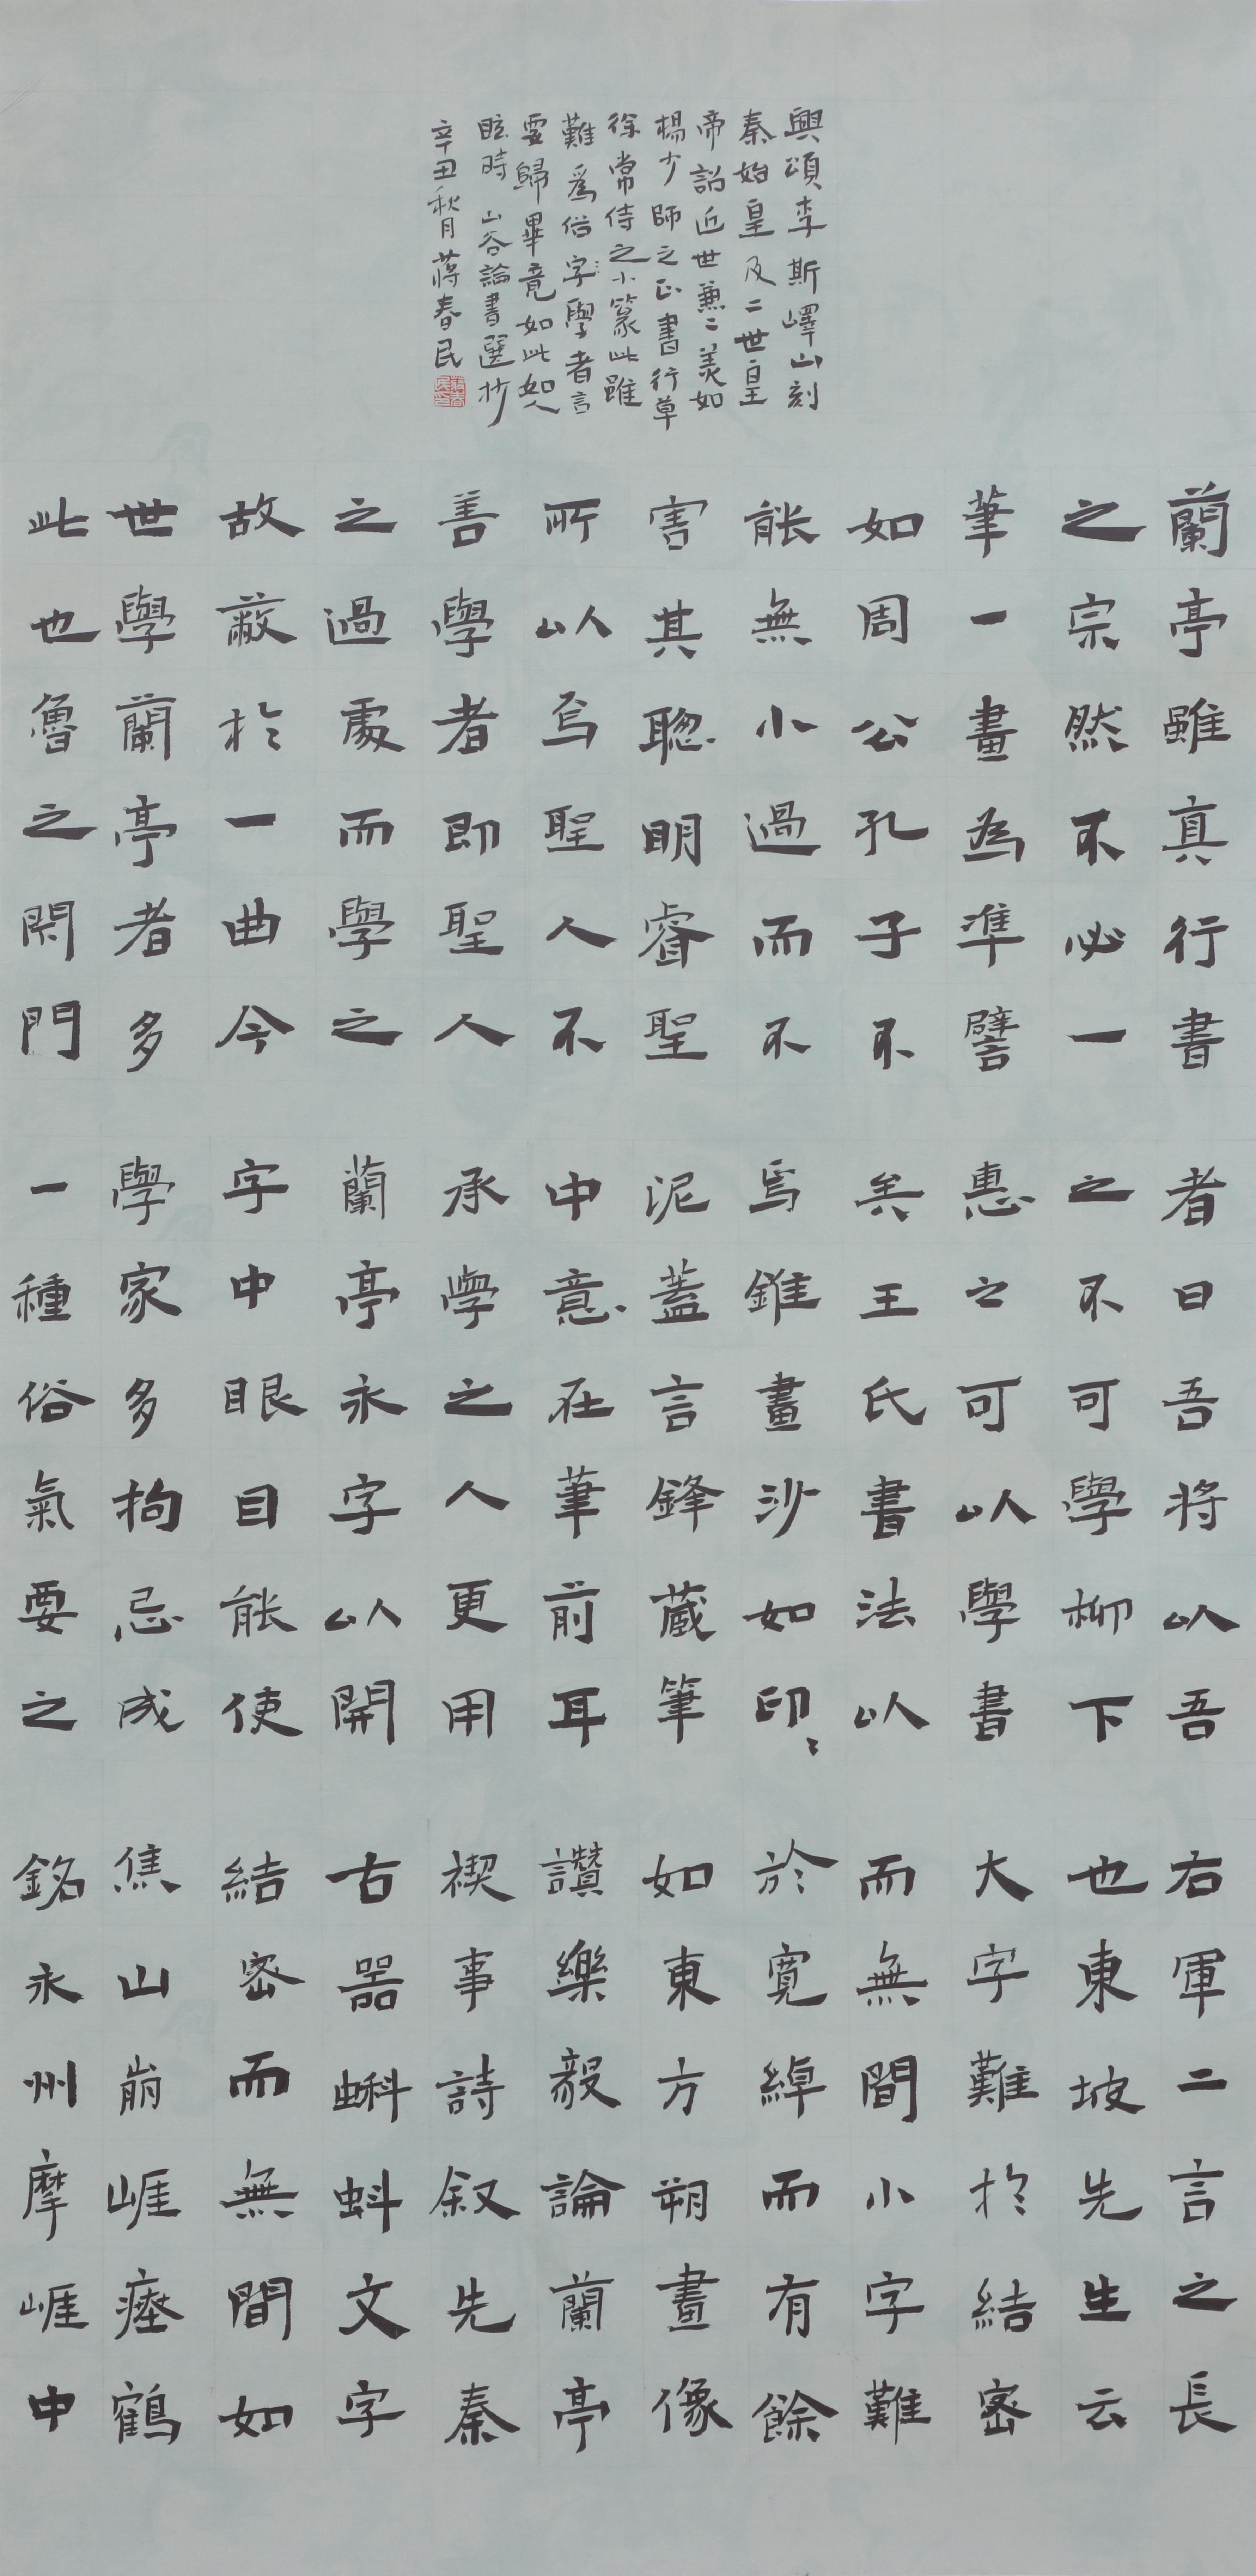 蘭亭雖真行書
之宗然不必一
筆一畫為準譬
如周公孔子不
能無小過而不
害其聰明睿聖
所以為聖人不
善學者即聖人
之過處而學之
故蔽於一曲今
世學蘭亭者多
此也魯之閉門
者曰吾將以吾
之不可學柳下
惠之可以學書
矣王氏書法以
為錐畫沙如印〻
泥蓋言鋒藏筆
中意在筆前耳
承學之人更用
蘭亭永字以開
字中眼目能使
學家多拘忌成
一種俗氣要之
右軍二言之長
也東坡先生云
大字難於結密
而無間小字難
於寬綽而有餘
如東方朔畫像
讚樂毅論蘭亭
禊事詩叙先秦
古器蝌蚪文字
結密而無間如
焦山崩崖瘞鶴
銘永州摩崖中
興頌李斯嶧山刻
秦始皇及二世皇
帝詔近世兼二美如
楊少師之正書行草
徐常侍之小篆此雖
難為俗字學者言
要歸畢竟如此如人
眩時 山谷論書選抄
辛丑秋月蔣春民